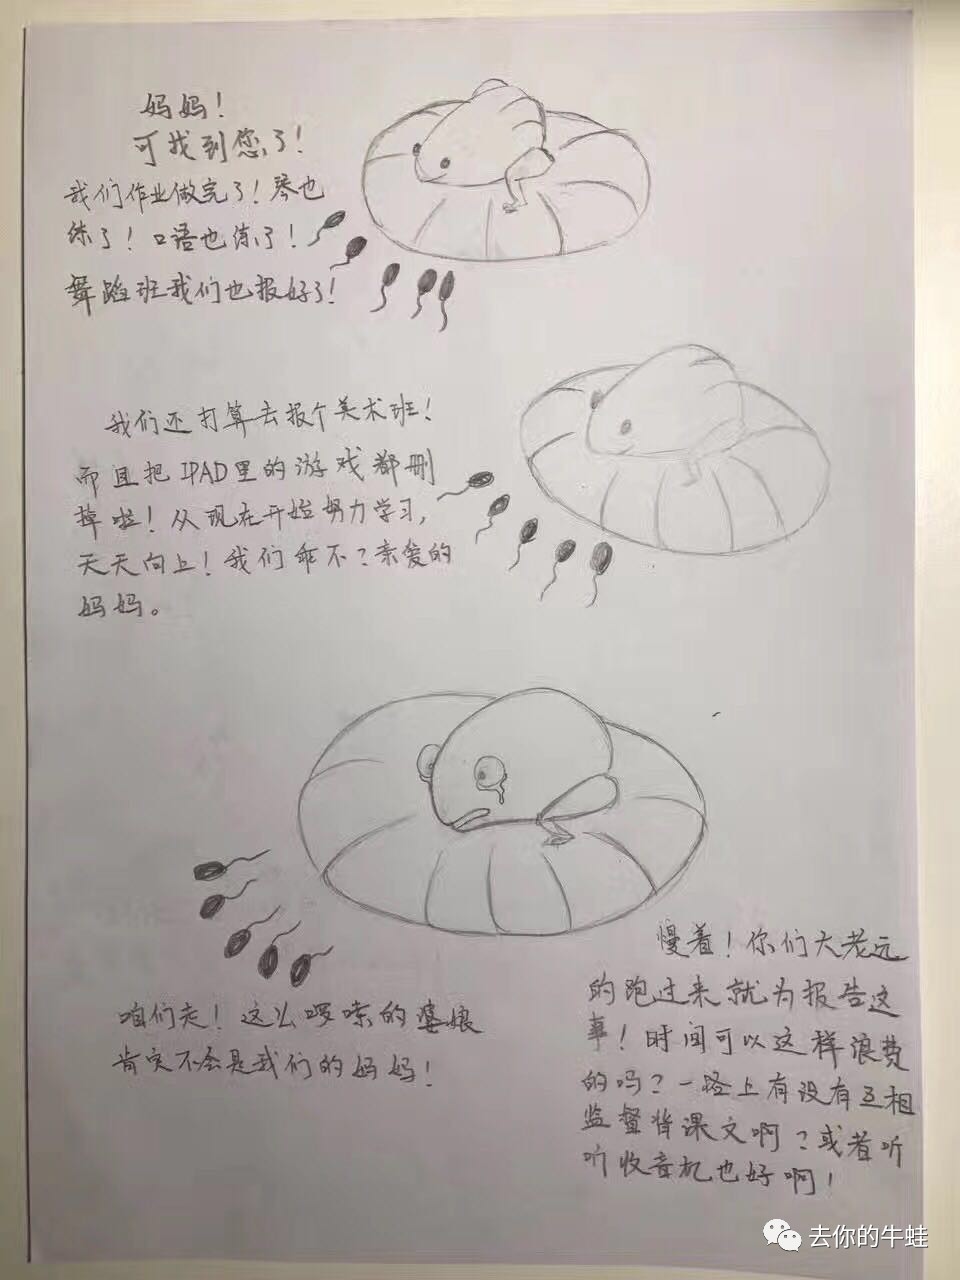 妈妈！
可找到您了！
我们作业做完了！琴也
练了！口语也练了！
舞蹈班我们也报好了！
我们还打算去报个美术班！
而且把IPAD里的游戏都删
掉啦！从现在开始努力学习，
天天向上！我们乖不？亲爱的
妈妈。
慢着！你们大老远
的跑过来就为报告这
事！时间可以这样浪费
的吗？一路上有没有互相
监督背课文啊？或者听
听收音机也好啊！
咱们走！这么啰嗦的婆娘
肯定不会是我们的妈妈！
去你的牛蛙